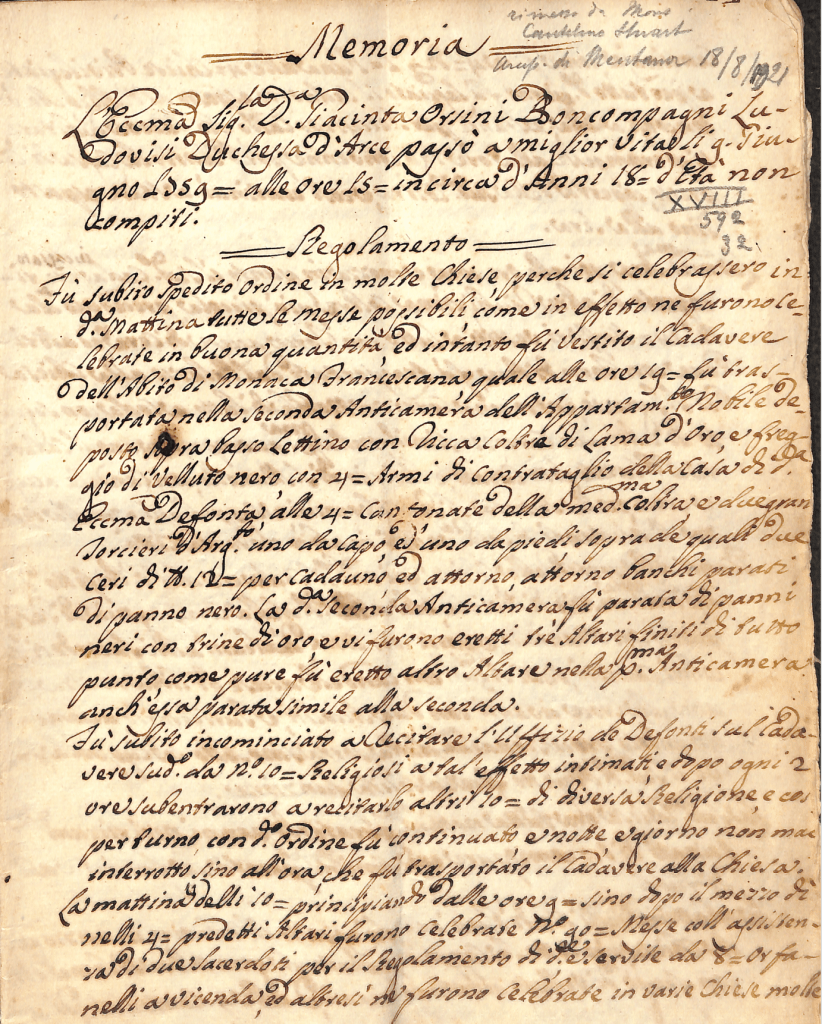 rimesso da Mons
Cantelmo Stuart
arcip. di Mentana 18/8/1921
Memoria
L'Eccma Sig.la D.a Giacinta Orsini Boncompagni Lu-
dovisi Duchessa d'Arce passò a miglior vita li 9. Giu-
gno 1759= alle ore 15= in circa d'Anni 18= d'Età non
compiti.
XVIII
592
32
Regolamento
Fù subito spedito ordine in molte Chiese, perche si celebrassero in
d.a Mattina tutte le Messe possibili come in effetto ne furono ce-
lebrate in buona quantità, ed intanto fù vestito il Cadavere
dell'Abito di Monaca Francescana quale alle ore 19= fù tras-
portata nella seconda Anticamera dell'Appartam.to Mobile de-
posto sopra basso Lettino con Ricca Coltre di Lama d'Oro e freg-
gio di Velluto nero con 4= Armi di contrataglio della Casa di d.a
Eccma Defonta, alle 4= Cantonate della med.ma Coltra e due gran
Torcieri d'Arg.to uno da capo, e d'uno da piedi sopra de quali due
ceri di lb. 12= per cadauno, ed attorno, attorno banchi parati
di panno nero. La d.a Seconda Anticamera fù parata di panni
neri con trine di oro, e vi furono eretti trè Altari finiti di tutto
punto come pure fù eretto altro Altare nella p.ma Anticamera
anch'essa parata simile alla seconda.
Fù subito incominciato a Recitare l'Uffizio de Defonti sul Cada-
vere sud.o da n.o 10= Religiosi a tal effetto intimati e dopo ogni 2
ore subentrarono a recitarlo altri 10= di diversa Religione e cos
per turno con d.o ordine fù continuato e notte e giorno non mai
interrotto sino all'ora che fù trasportato il Cadavere alla Chiesa.
La mattina delli 10= principiando dalle ore 9= sino dopo il mezzo dì
nelli 4= predetti Altari furono celebrate N.o 90= Messe coll'assisten-
za di due Sacerdoti per il Regolamento di d.e e servite da 8= Orfa-
nelli a vicenda, ed altresì ne furono celebrate in varie Chiese molte